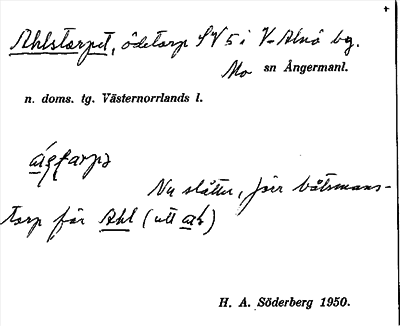 Ahlstorpet, ödetorp SV 5 i V-Alnö by.
Mo sn Ångermanl.
n. doms. tg. Västernorrlands l.
Nu slåtter, förr båtsmans-
torp för Ahl (utt
H. A. Söderberg 1950.